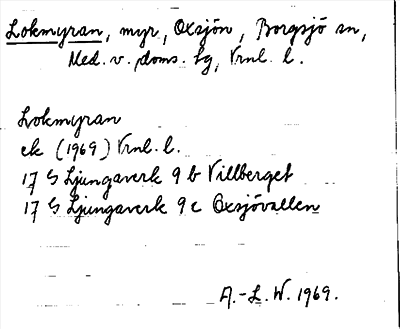 Lokmyran, myr, Oxsjön, Borgsjö sn,
Med. v. doms. lg, Vrnl. l.
Lokmyran
ek (1969) Vrnl. l.
17 G Ljungaverk 9 b Villberget
17 G Ljungaverk 9 c Oxsjövallen
A.-L. W. 1969.